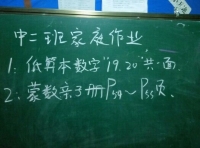 中二班家庭作业
1: 低算本数字"19.20"共一面
2: 蒙数亲3册P54~P55页.